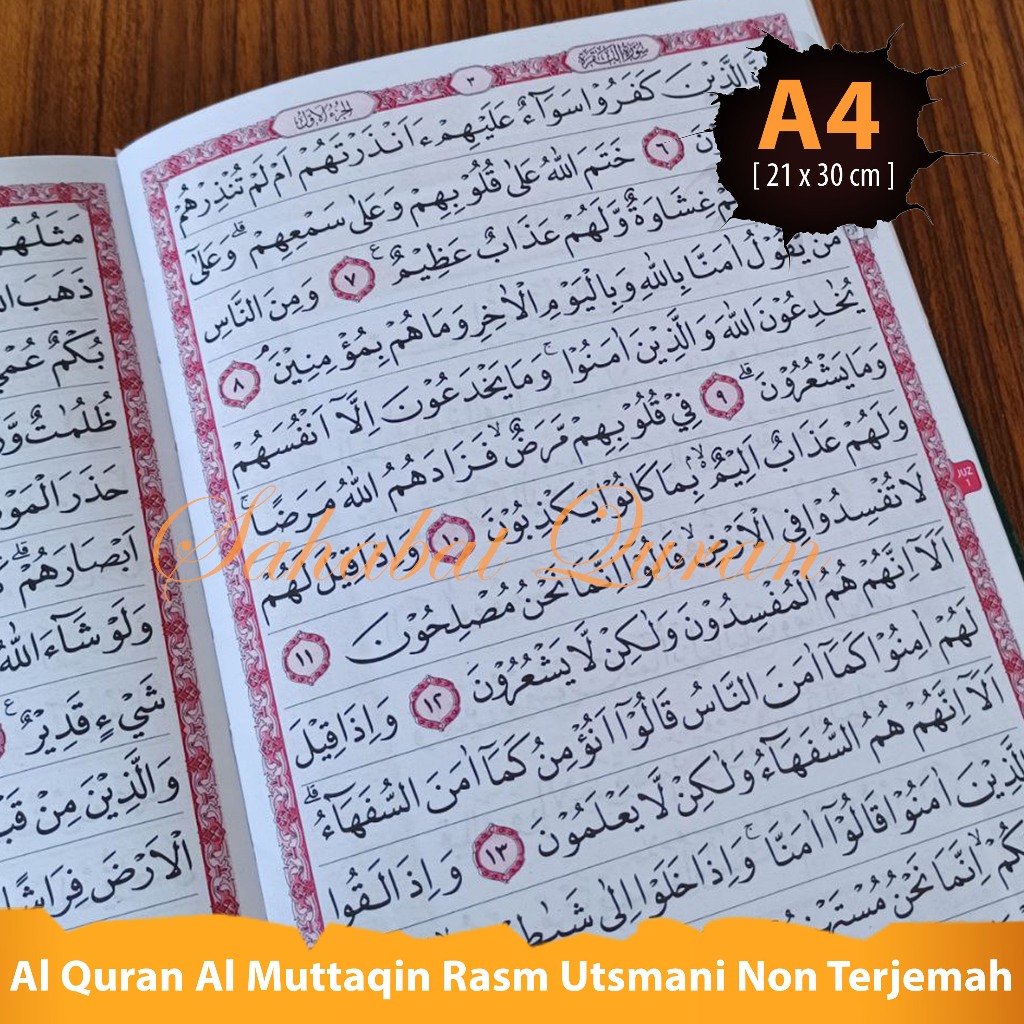 A4
[ 21 x 30 cm ]
سورة البقرة
٣
الجزء الاول
الَّذِيْنَ كَفَرُوْا سَوَاۤءٌ عَلَيْهِمْ ءَاَنْذَرْتَهُمْ اَمْ لَمْ تُنْذِرْهُمْ
٦ خَتَمَ اللّٰهُ عَلٰى قُلُوْبِهِمْ وَعَلٰى سَمْعِهِمْ ۗ وَعَلٰٓى
غِشَاوَةٌ وَّلَهُمْ عَذَابٌ عَظِيْمٌ ٧ وَمِنَ النَّاسِ
مَنْ يَّقُوْلُ اٰمَنَّا بِاللّٰهِ وَبِالْيَوْمِ الْاٰخِرِ وَمَا هُمْ بِمُؤْمِنِيْنَ ۘ ٨
يُخٰدِعُوْنَ اللّٰهَ وَالَّذِيْنَ اٰمَنُوْا ۚ وَمَا يَخْدَعُوْنَ اِلَّآ اَنْفُسَهُمْ
وَمَا يَشْعُرُوْنَ ۗ ٩ فِيْ قُلُوْبِهِمْ مَّرَضٌۙ فَزَادَهُمُ اللّٰهُ مَرَضًا ۚ
وَلَهُمْ عَذَابٌ اَلِيْمٌ ۢ ەۙ بِمَا كَانُوْا يَكْذِبُوْنَ ١٠ وَاِذَا قِيْلَ لَهُمْ
لَا تُفْسِدُوْا فِى الْاَرْضِۙ قَالُوْٓا اِنَّمَا نَحْنُ مُصْلِحُوْنَ ١١
اَلَآ اِنَّهُمْ هُمُ الْمُفْسِدُوْنَ وَلٰكِنْ لَّا يَشْعُرُوْنَ ١٢ وَاِذَا قِيْلَ
لَهُمْ اٰمِنُوْا كَمَآ اٰمَنَ النَّاسُ قَالُوْٓا اَنُؤْمِنُ كَمَآ اٰمَنَ السُّفَهَاۤءُ ۗ
اَلَآ اِنَّهُمْ هُمُ السُّفَهَاۤءُ وَلٰكِنْ لَّا يَعْلَمُوْنَ ١٣ وَاِذَا لَقُوا
الَّذِيْنَ اٰمَنُوْا قَالُوْٓا اٰمَنَّا ۚ وَاِذَا خَلَوْا اِلٰى
اِنَّمَا نَحْنُ
JUZ
1
مَثَلُهُمْ
ذَهَبَ
بُكْمٌ
ظُلُمٰتٌ
حَذَرَ
اَبْصَارَهُمْ ۗ
وَلَوْ شَاۤءَ اللّٰهُ
شَيْءٍ قَدِيْرٌ
وَالَّذِيْنَ مِنْ
الْاَرْضَ
Sahabat Quran
Al Quran Al Muttaqin Rasm Utsmani Non Terjemah